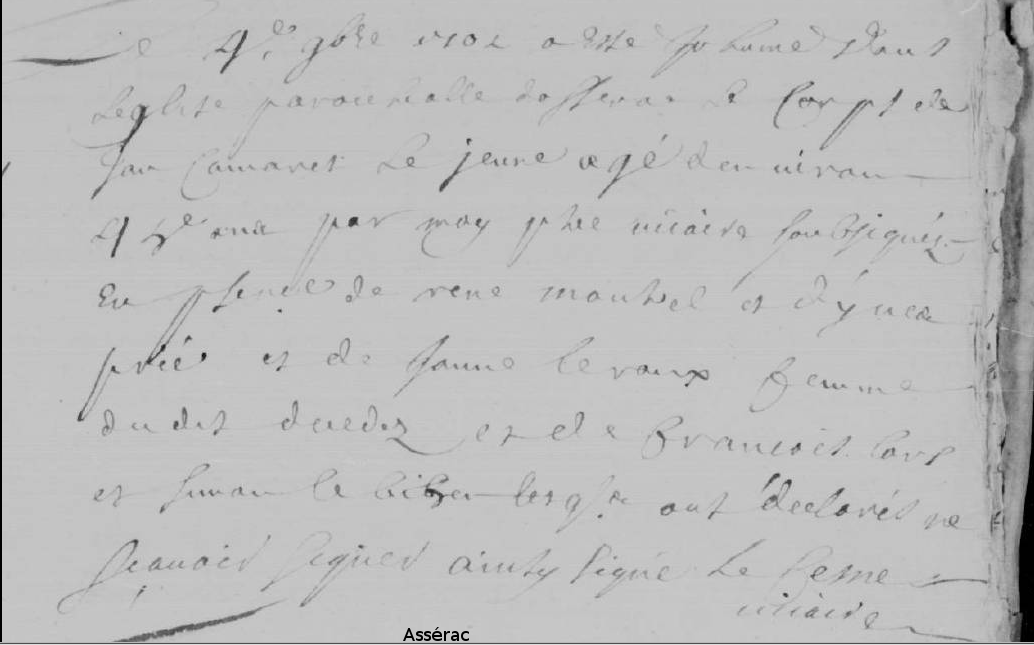 Le 4e 9bre 1702 a esté Inhumé dans
leglise paroichialle dasserac le Corps de
Jan Camaret le jeune agé denuiron
45 ans par moy pbre vicaire soubsigné
En psence de rene mouhel et dyuea
prié et de Janne leroux femme
dudit decedez et de francois
et simon le lesqls ont declarés ne
scauoir signer ainsy signé le
viciaire
Assérac